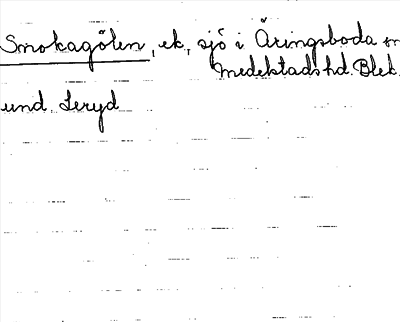 Smokagölen, ek, sjö i Åringsboda sn
Medelstads hd. Blek.
und. Leryd